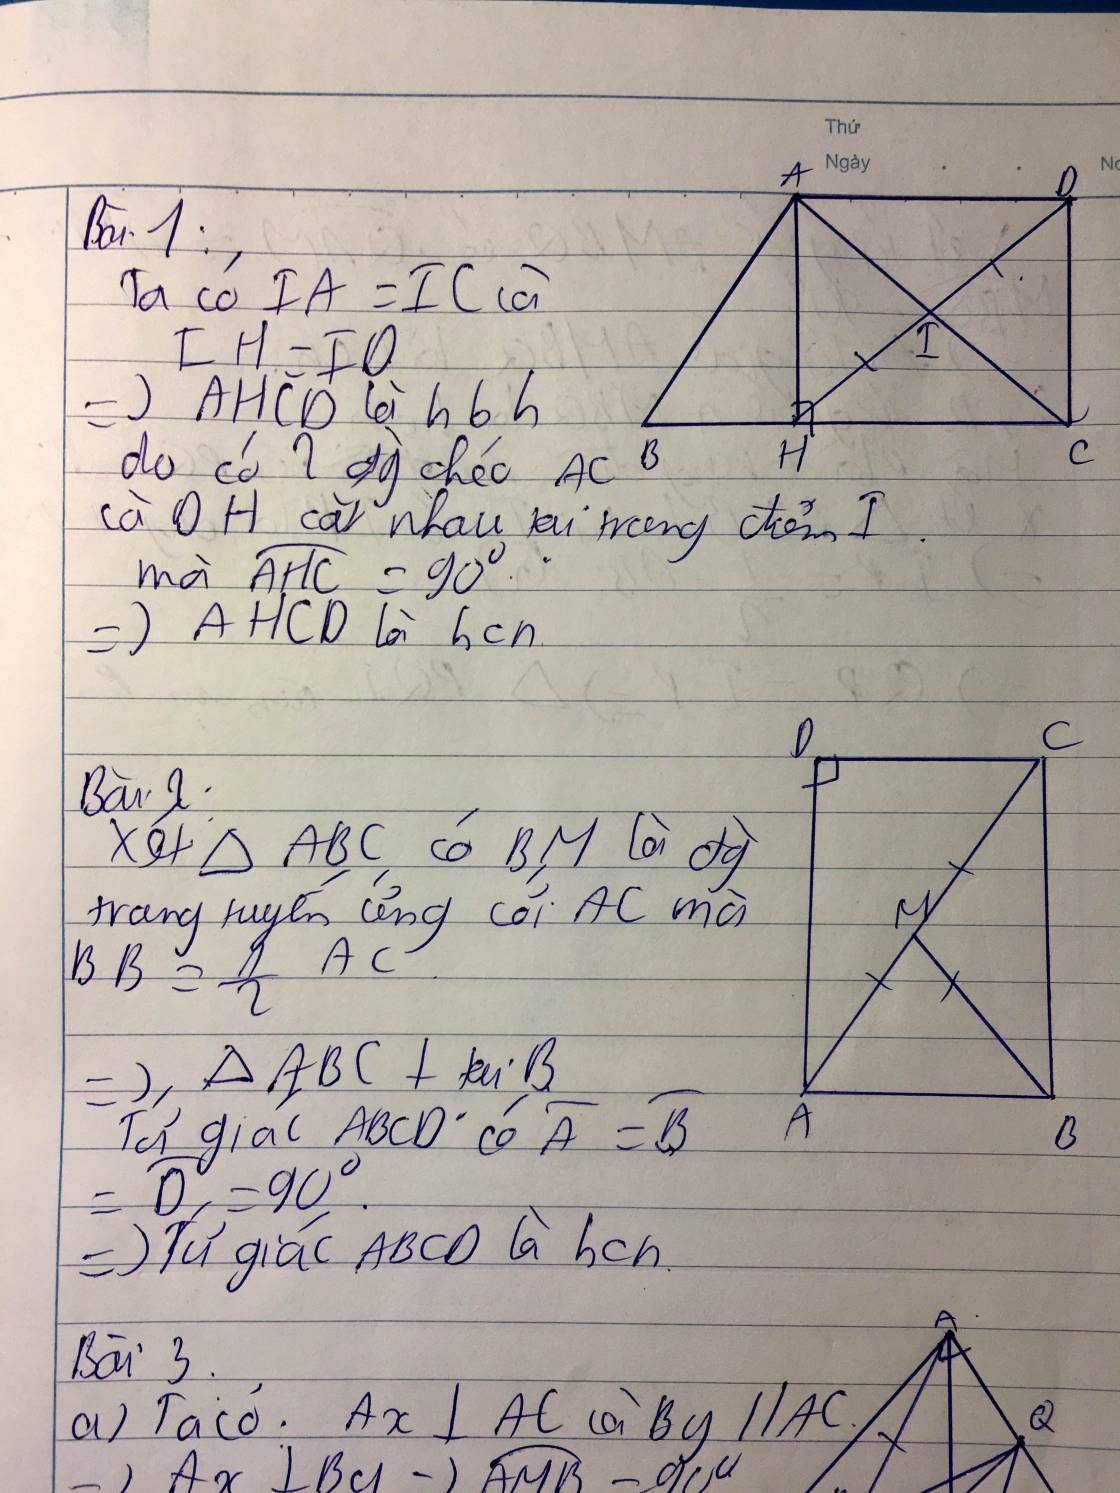 Thứ
Ngày
No
Bài 1:
Ta có IA = IC và
IH = ID
=) AHCD là hbh
do có 2 đg chéo AC
và DH cắt nhau tại trung điểm I.
mà AHC = 90°.
=) AHCD là hcn
A
D
I
B
H
C
Bài 2:
Xét △ ABC có BM là đg
trung tuyến ứng với AC mà
BB = 1/2 AC.
=) △ ABC ⊥ tại B
Tứ giác ABCD có A = B
= D = 90°.
=) Tứ giác ABCD là hcn.
D
C
M
A
B
Bài 3.
a) Ta có. Ax ⊥ AC và By // AC.
=) Ax ⊥ By =) AMB = 90°
A
Q